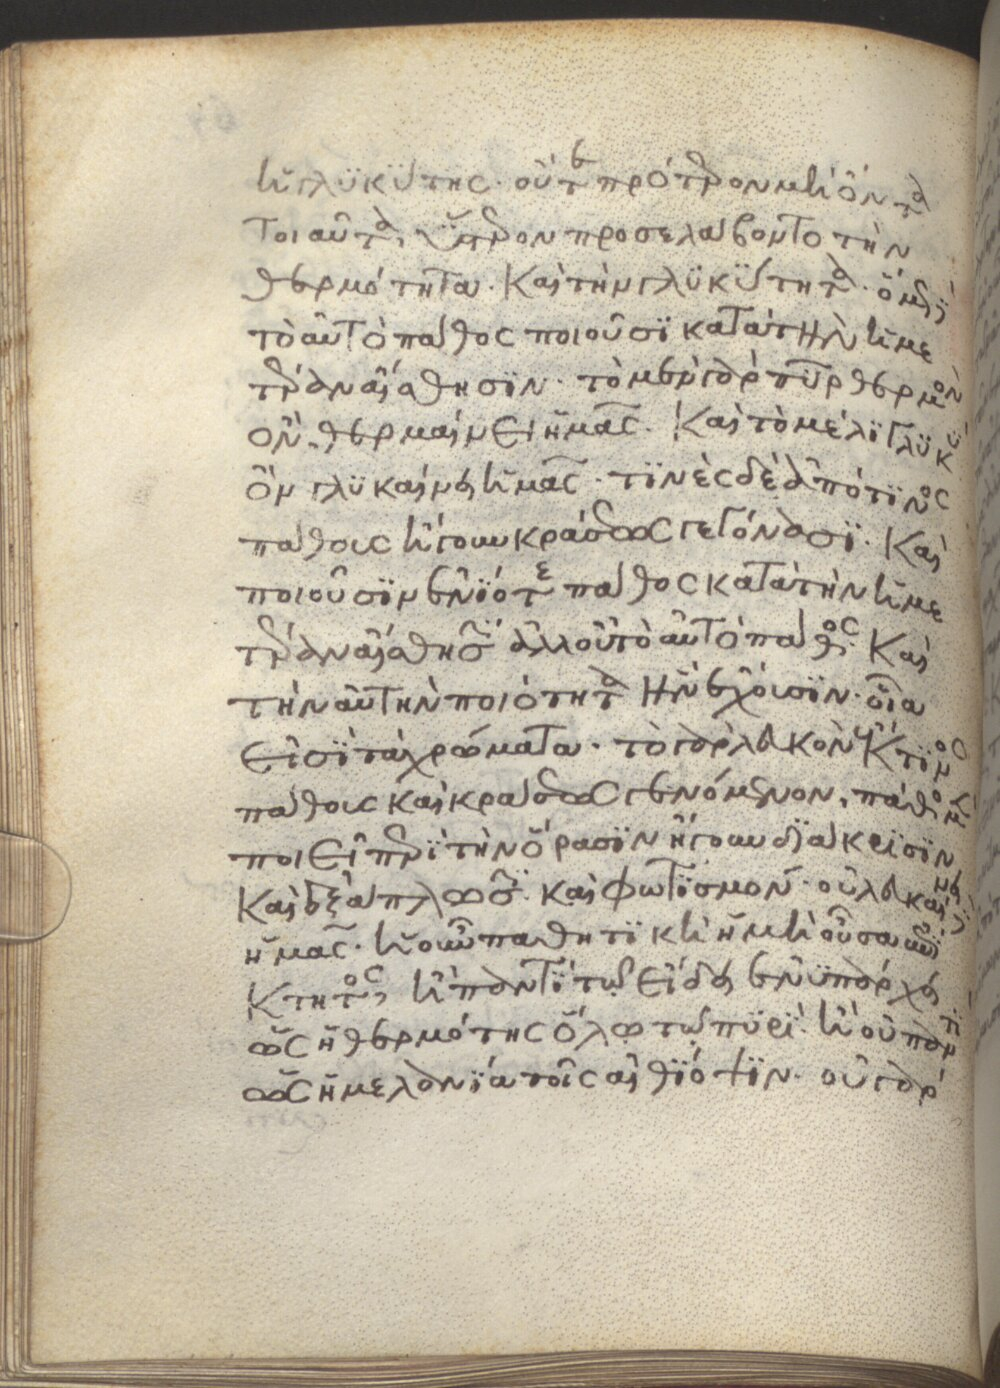 ἡ γλυκύτης. οὔτε πρότερον μὴ ὄντα
τοιαῦτα, ὕστερον προσελάβοντο τὴν
θερμότητα. καὶ τὴν γλυκύτητα. ὅμως
τὸ αὐτὸ πάθος ποιοῦσι κατὰ τὴν ἡμε
τέραν αἴσθησιν. τὸ μὲν γὰρ πῦρ θερμὸν
ὂν, θερμαίνει ἡμᾶς. καὶ τὸ μέλι γλυκὺ
ὂν γλυκαίνει ἡμᾶς. τινὲς δὲ ἀπό τινος
πάθους ἤγουν κράσεως γεγόνασι. καὶ
ποιοῦσι μὲν ἐνίοτε πάθος κατὰ τὴν ἡμε
τέραν αἴσθησιν ἀλλ' οὐ τὸ αὐτὸ πάθος. καὶ
τὴν αὐτὴν ποιότητα ἣν ἔχουσιν. οἷα
εἰσὶ τὰ χρώματα. τὸ γὰρ λευκὸν ἔκ τινος
πάθους καὶ κράσεως γενόμενον, πάθος μὲν
ποιεῖ περὶ τὴν ὅρασιν ἤγουν διάκρισιν
καὶ ἐξάπλωσιν. καὶ φωτισμόν. οὐ λευκαίνει
ἡμᾶς. ἡ οὖν παθητικὴ ἢ μὴ οὖσα
ἐπίκτητος, ἢ παντὶ τῷ εἴδει ἐνυπάρχει
ὡς ἡ θερμότης ὅλῳ τῷ πυρί. ἢ οὐ παντὶ
ὡς ἡ μελανία τοῖς αἰθίοψιν. οὐ γὰρ